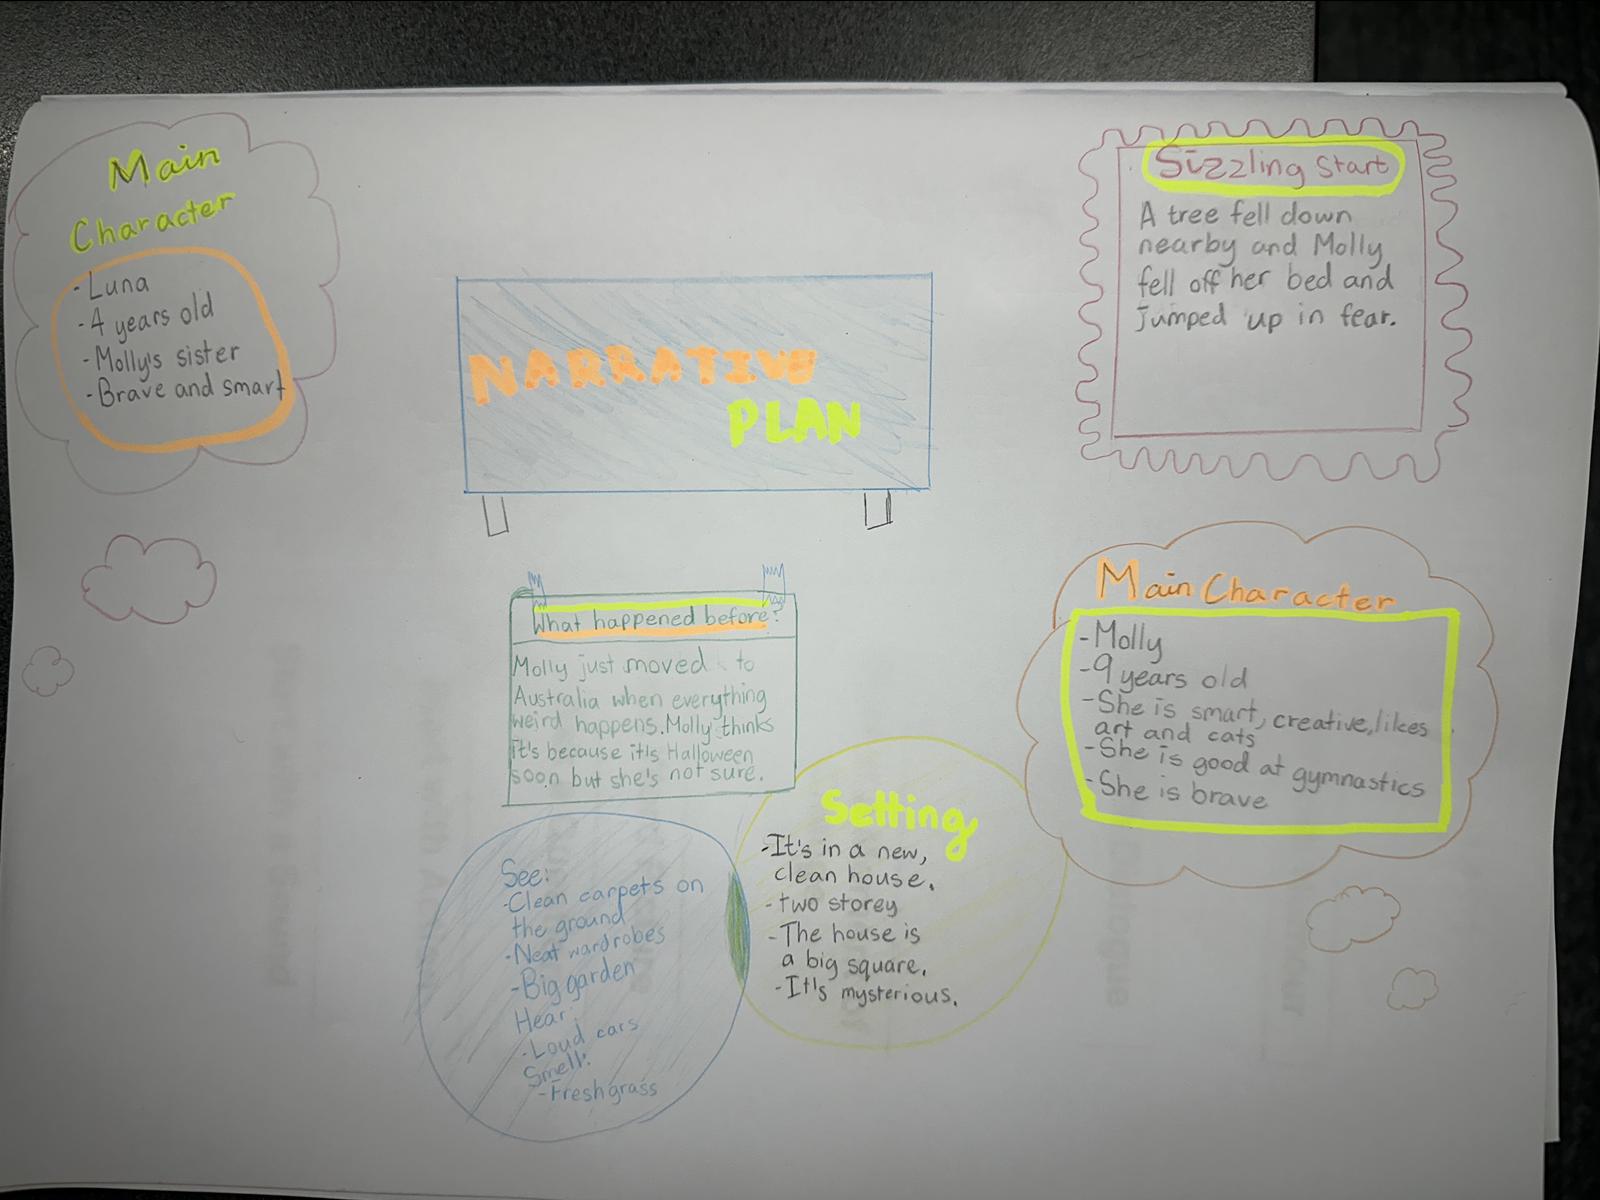 Main
Character
- Luna
- 4 years old
- Molly's sister
- Brave and smart
NARRATIVE
PLAN
Sizzling Start
A tree fell down
nearby and Molly
fell off her bed and
jumped up in fear.
What happened before?
Molly just moved to
Australia when everything
weird happens. Molly thinks
it's because it's Halloween
soon but she's not sure.
Main Character
- Molly
- 9 years old
- She is smart, creative, likes
art and cats
- She is good at gymnastics
- She is brave
See:
- Clean carpets on
the ground
- Neat wardrobes
- Big garden
Hear:
- Loud cars
Smell:
- Fresh grass
Setting
- It's in a new,
clean house.
- two storey
- The house is
a big square.
- It's mysterious.